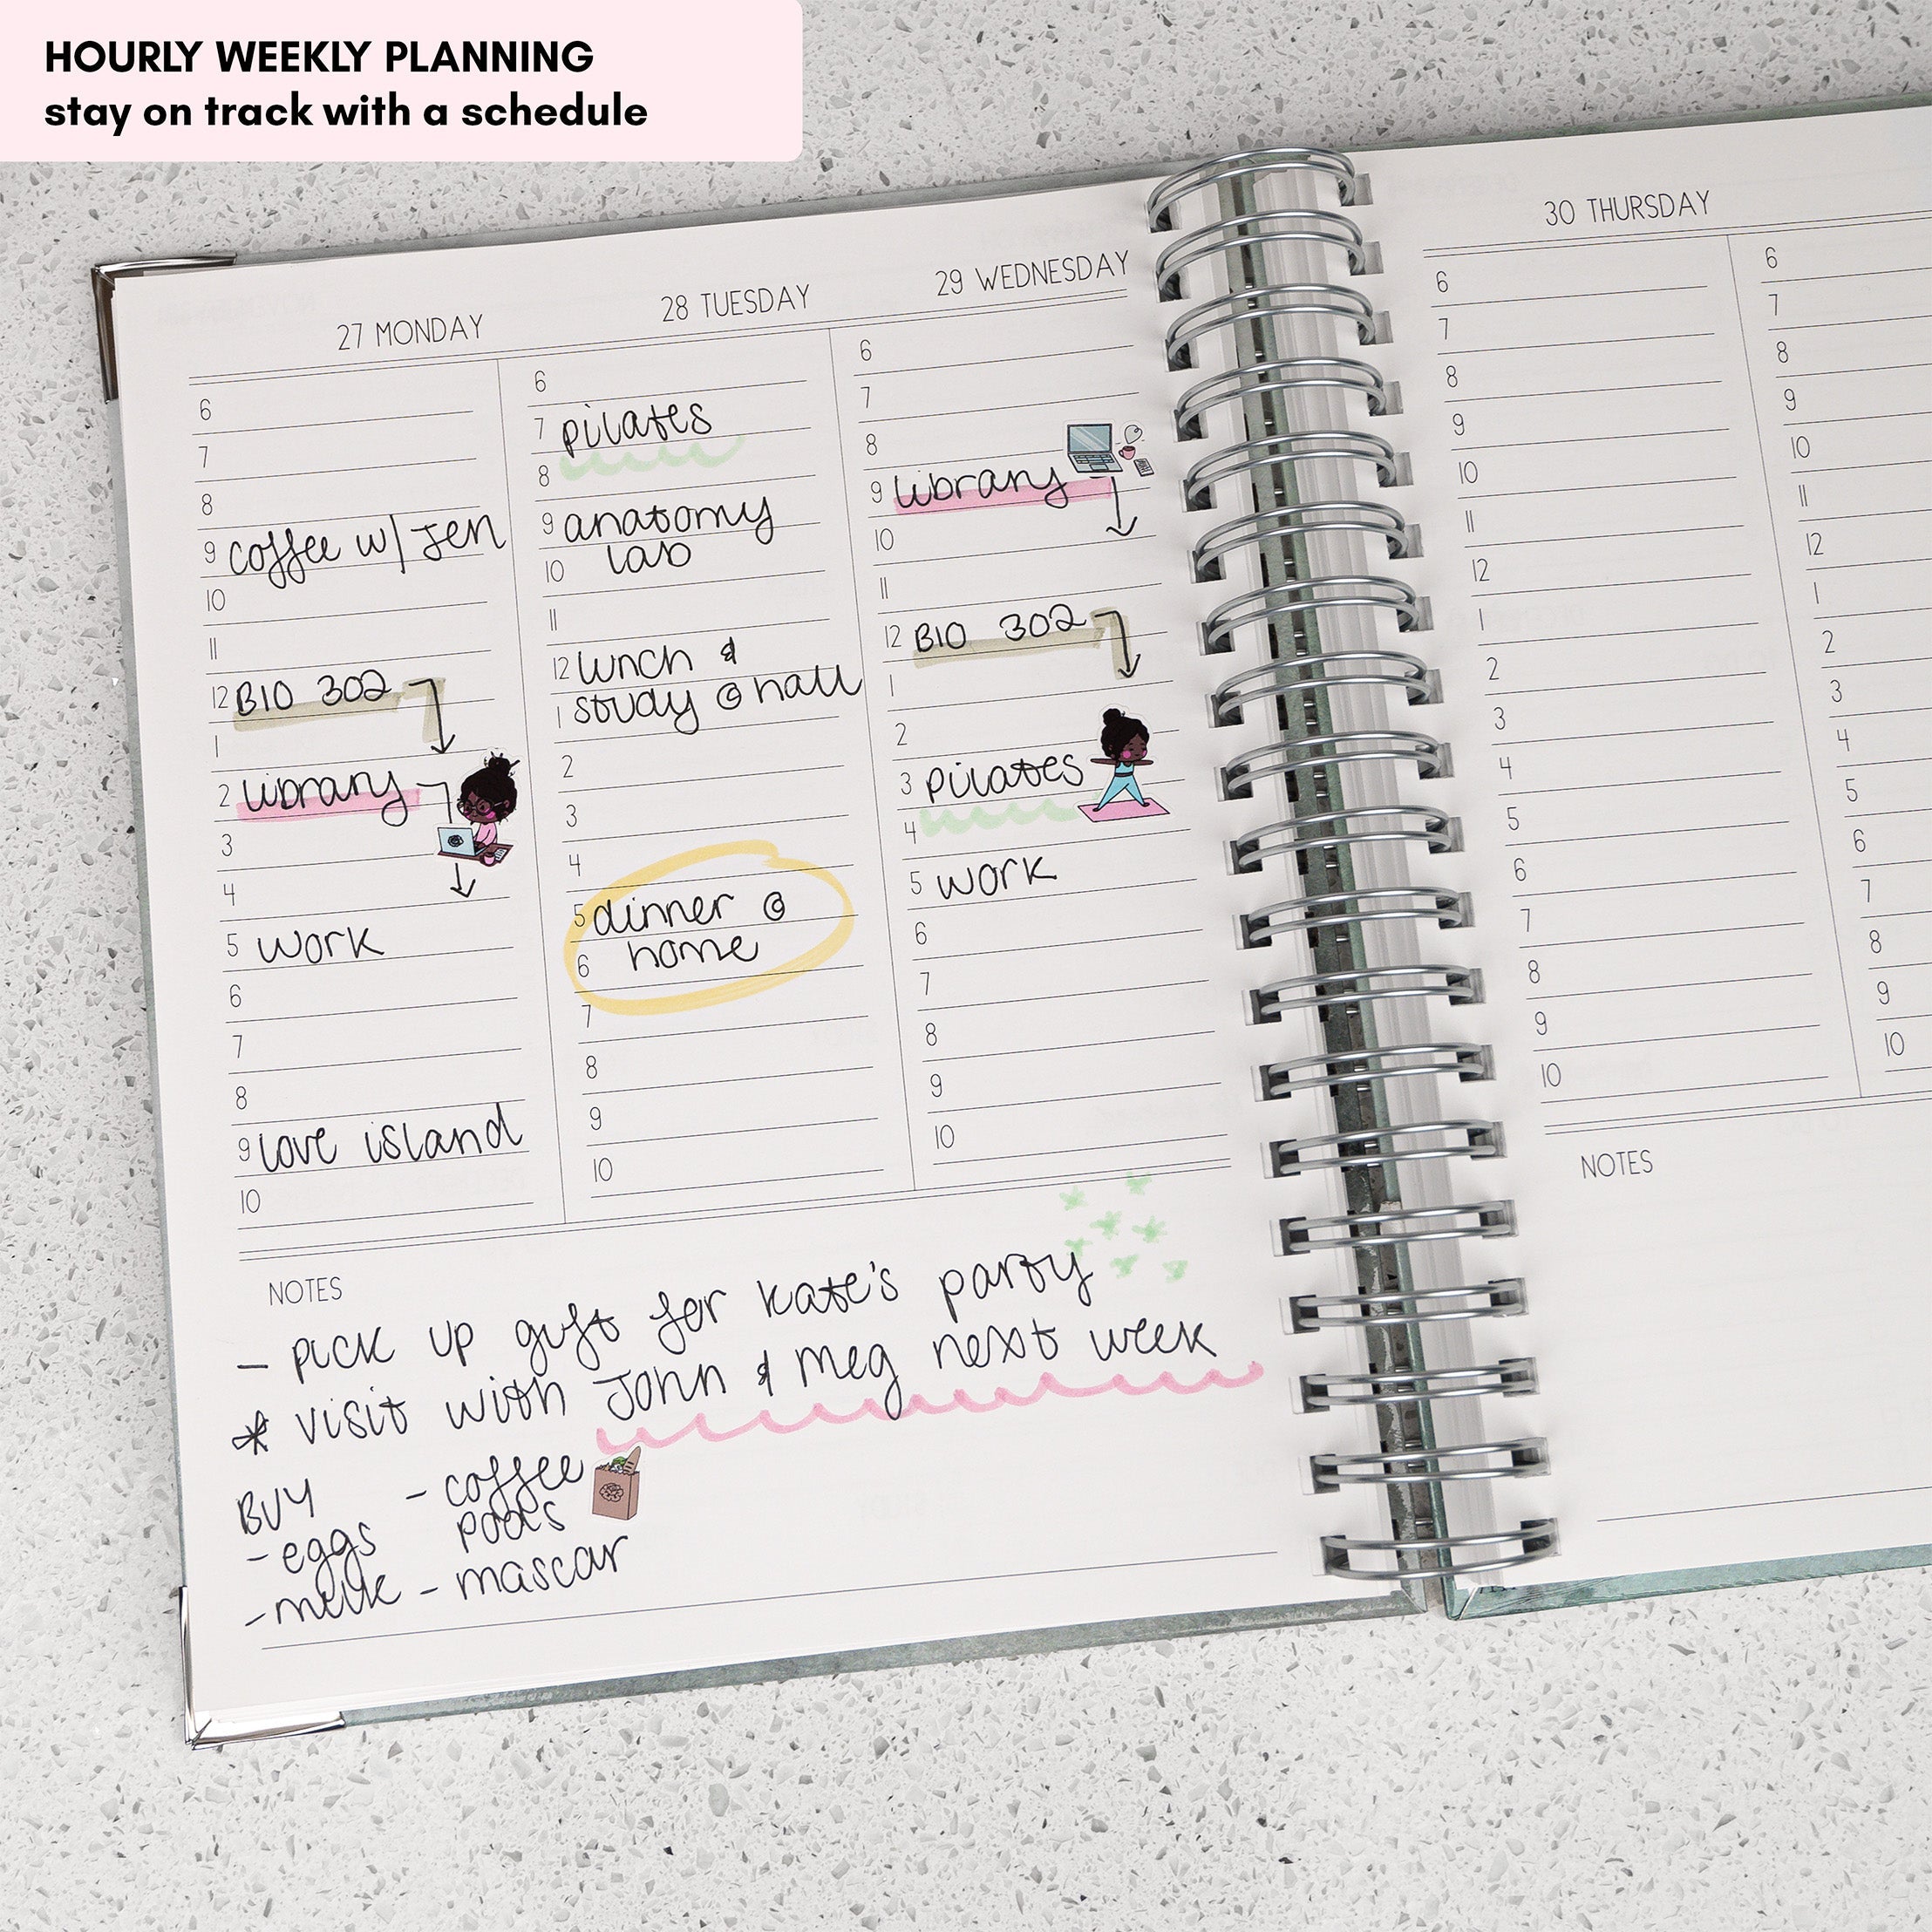 HOURLY WEEKLY PLANNING
stay on track with a schedule
27 MONDAY
6
7
8
9 coffee w/ Jen
10
11
12 BIO 302
1
2 library
3
4
5 work
6
7
8
9 love island
10
28 TUESDAY
6
7 pilates
8
9 anatomy
10 lab
11
12 lunch &
1 study @ hall
2
3
4
5 dinner @
6 home
7
8
9
10
29 WEDNESDAY
6
7
8
9 library
10
11
12 BIO 302
1
2
3 pilates
4
5 work
6
7
8
9
10
NOTES
- pick up gift for kate's party
* visit with John & Meg next week
BUY
- eggs
- milk
- coffee
pods
- mascar
30 THURSDAY
6
7
8
9
10
11
12
1
2
3
4
5
6
7
8
9
10
6
7
8
9
10
11
12
1
2
3
4
5
6
7
8
9
10
NOTES